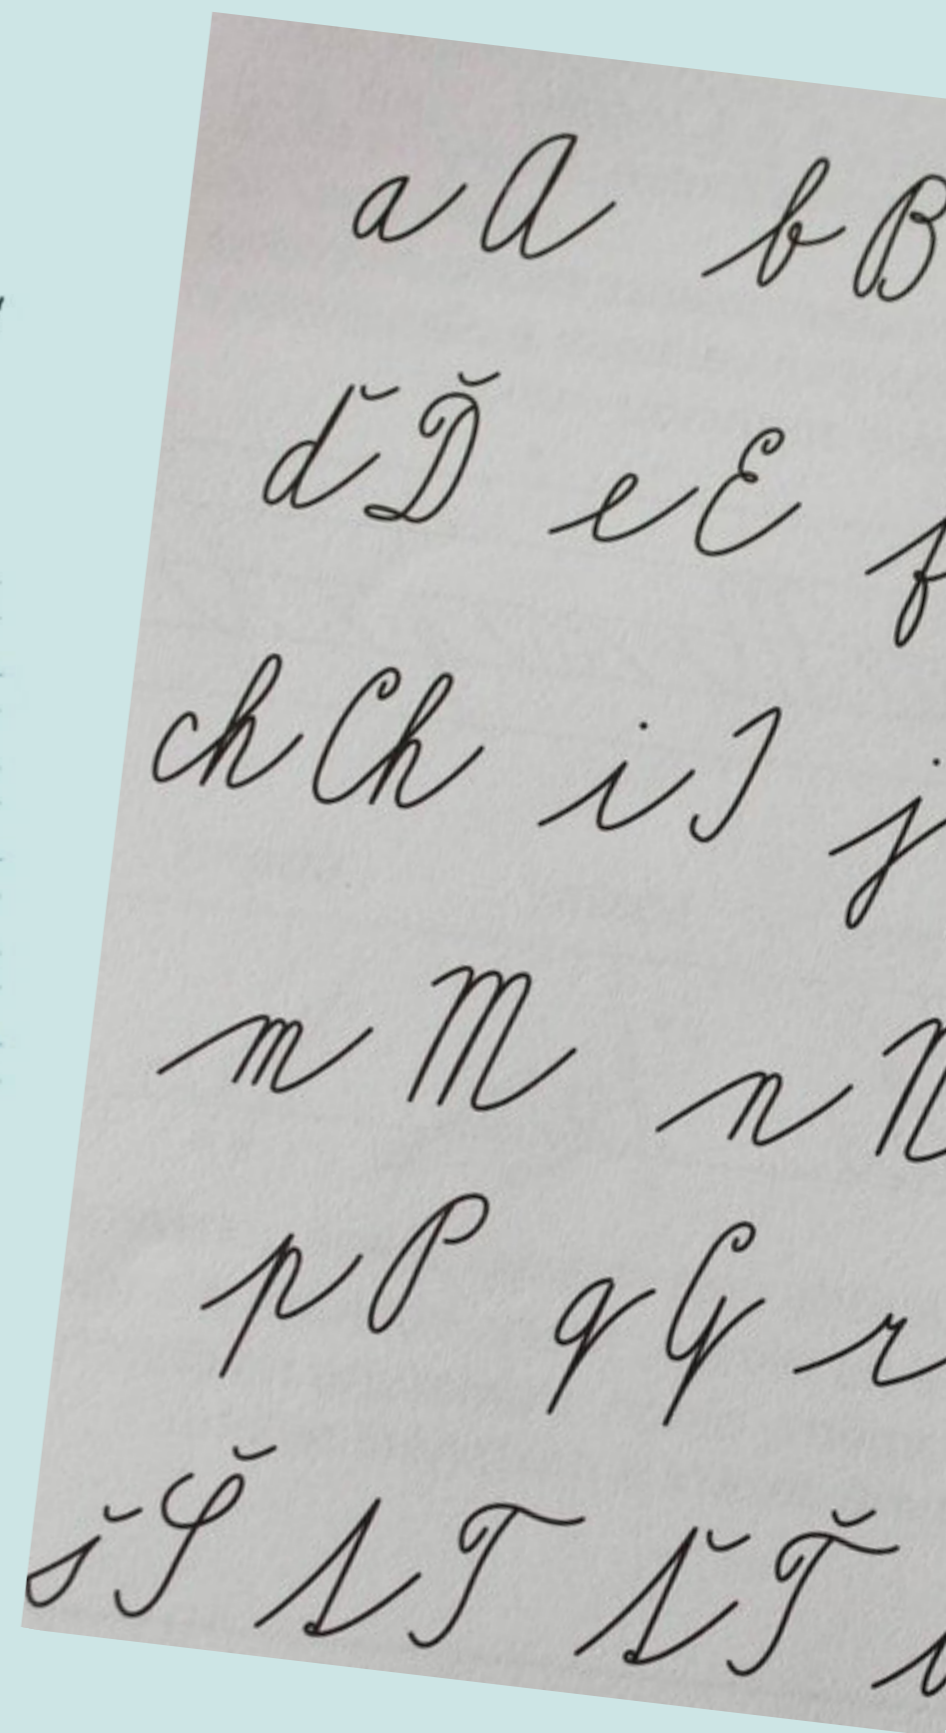 a A b B
ď Ď e E f
ch Ch i I j
m M n N
p P q Q r
š Š t T ť Ť